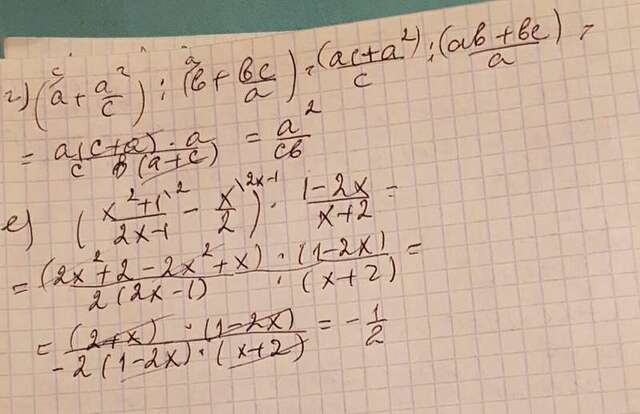 г) (a^c + a²/c) : (b^a + bc/a) = (ac+a²)/c : (ab+bc)/a =
= a(c+a)·a / c b(a+c) = a²/cb
е) ((x²+1)/(2x-1)^2 - x/2^(2x-1)) · (1-2x)/(x+2) =
= (2x²+2-2x²+x)/2(2x-1) · (1-2x)/(x+2) =
= (2+x)·(1-2x) / -2(1-2x)·(x+2) = -1/2